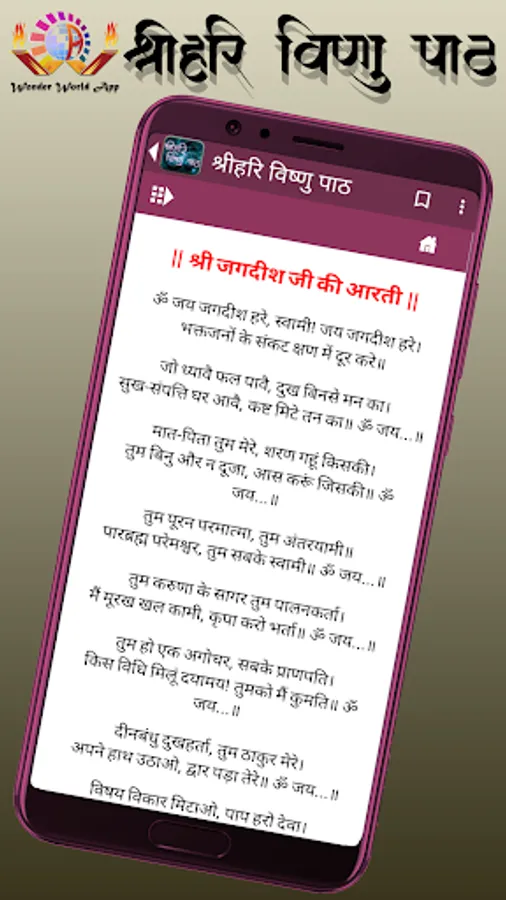 श्रीहरि विष्णु पाठ
Wonder World App
श्रीहरि विष्णु पाठ
|| श्री जगदीश जी की आरती ||
ॐ जय जगदीश हरे, स्वामी! जय जगदीश हरे।
भक्तजनों के संकट क्षण में दूर करे॥
जो ध्यावै फल पावै, दुख बिनसे मन का।
सुख-संपत्ति घर आवै, कष्ट मिटे तन का॥ ॐ जय...॥
मात-पिता तुम मेरे, शरण गहूं किसकी।
तुम बिनु और न दूजा, आस करूं जिसकी॥ ॐ
जय...॥
तुम पूरन परमात्मा, तुम अंतरयामी॥
पारब्रह्म परेमश्वर, तुम सबके स्वामी॥ ॐ जय...॥
तुम करुणा के सागर तुम पालनकर्ता।
मैं मूरख खल कामी, कृपा करो भर्ता॥ ॐ जय...॥
तुम हो एक अगोचर, सबके प्राणपति।
किस विधि मिलूं दयामय! तुमको मैं कुमति॥ ॐ
जय...॥
दीनबंधु दुखहर्ता, तुम ठाकुर मेरे।
अपने हाथ उठाओ, द्वार पड़ा तेरे॥ ॐ जय...॥
विषय विकार मिटाओ, पाप हरो देवा।